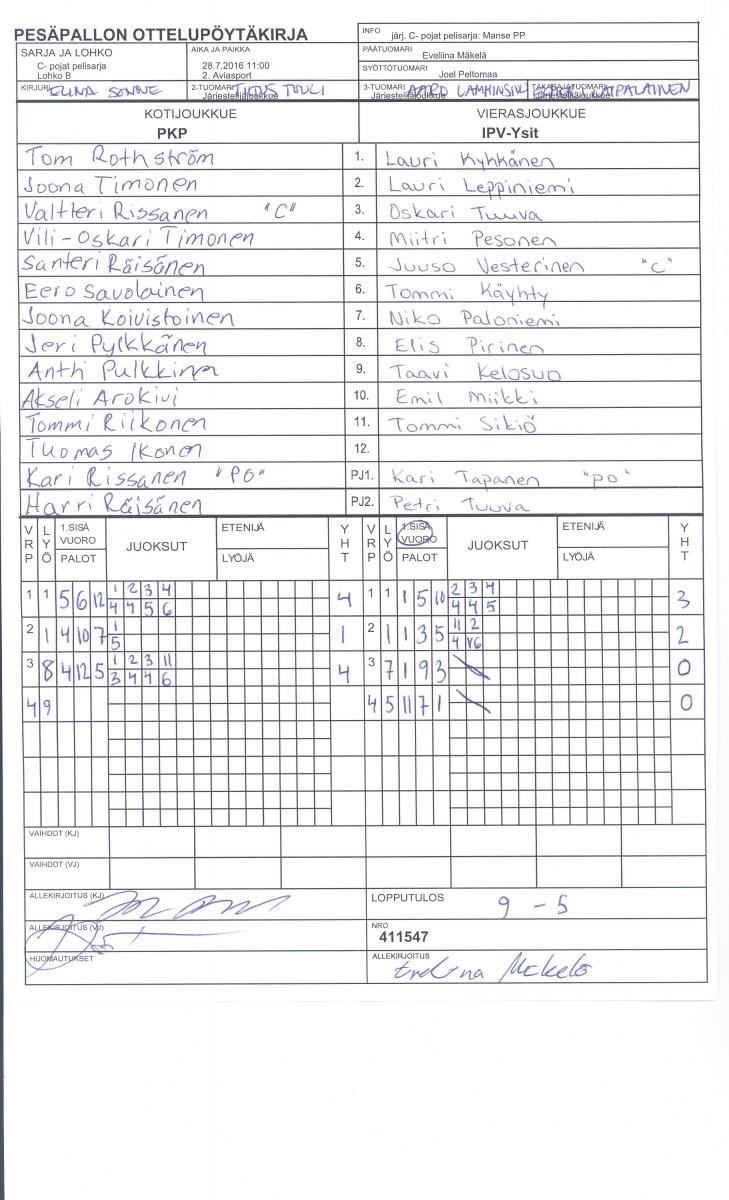 PESÄPALLON OTTELUPÖYTÄKIRJA
INFO järj. C- pojat pelisarja: Manse PP
SARJA JA LOHKO
C- pojat pelisarja
Lohko B
AIKA JA PAIKKA
28.7.2016 11:00
2. Aviasport
PÄÄTUOMARI
Eveliina Mäkelä
SYÖTTÖTUOMARI
Joel Peltomaa
KIRJURI ELINA SONNE
2-TUOMARI TUULI
Järjestelijäjoukkue
3-TUOMARI
Järjestelijäjoukkue
TAKARAJATUOMARI LAIPALAINEN
Järjestelijäjoukkue
KOTIJOUKKUE
PKP
VIERASJOUKKUE
IPV-Ysit
Tom Rothström 1. Lauri Kyhkänen
Joona Timonen 2. Lauri Leppiniemi
Valtteri Rissanen "C" 3. Oskari Tuuva
Vili-Oskari Timonen 4. Miitri Pesonen
Santeri Räisänen 5. Juuso Vesterinen "C"
Eero Savolainen 6. Tommi Käyhty
Joona Koivistoinen 7. Niko Paloniemi
Jeri Pylkkänen 8. Elis Pirinen
Antti Pulkkinen 9. Taavi Kelosuo
Akseli Arokivi 10. Emil Miikki
Tommi Riikonen 11. Tommi Sikiö
Tuomas Ikonen 12.
Kari Rissanen "PO" PJ1. Kari Tapanen "PO"
Harri Räisänen PJ2. Petri Tuuva
VRP LYÖ 1.SISÄ VUORO PALOT JUOKSUT ETENIJÄ LYÖJÄ YHT VRP LYÖ 1.SISÄ VUORO PALOT JUOKSUT ETENIJÄ LYÖJÄ YHT
1 1 5 6 12 1 2 3 4 4 1 1 1 5 10 2 3 4 3
4 4 5 6 4 4 5
2 1 4 10 7 1 1 2 1 1 3 5 11 2 2
5 4 V6
3 8 4 12 5 1 2 3 11 4 3 7 1 9 3 0
3 4 4 6
4 9 4 5 11 7 1 0
VAIHDOT (KJ)
VAIHDOT (VJ)
ALLEKIRJOITUS (KJ)
LOPPUTULOS 9 - 5
ALLEKIRJOITUS (VJ)
NRO
411547
HUOMAUTUKSET
ALLEKIRJOITUS Eveliina Mäkelä